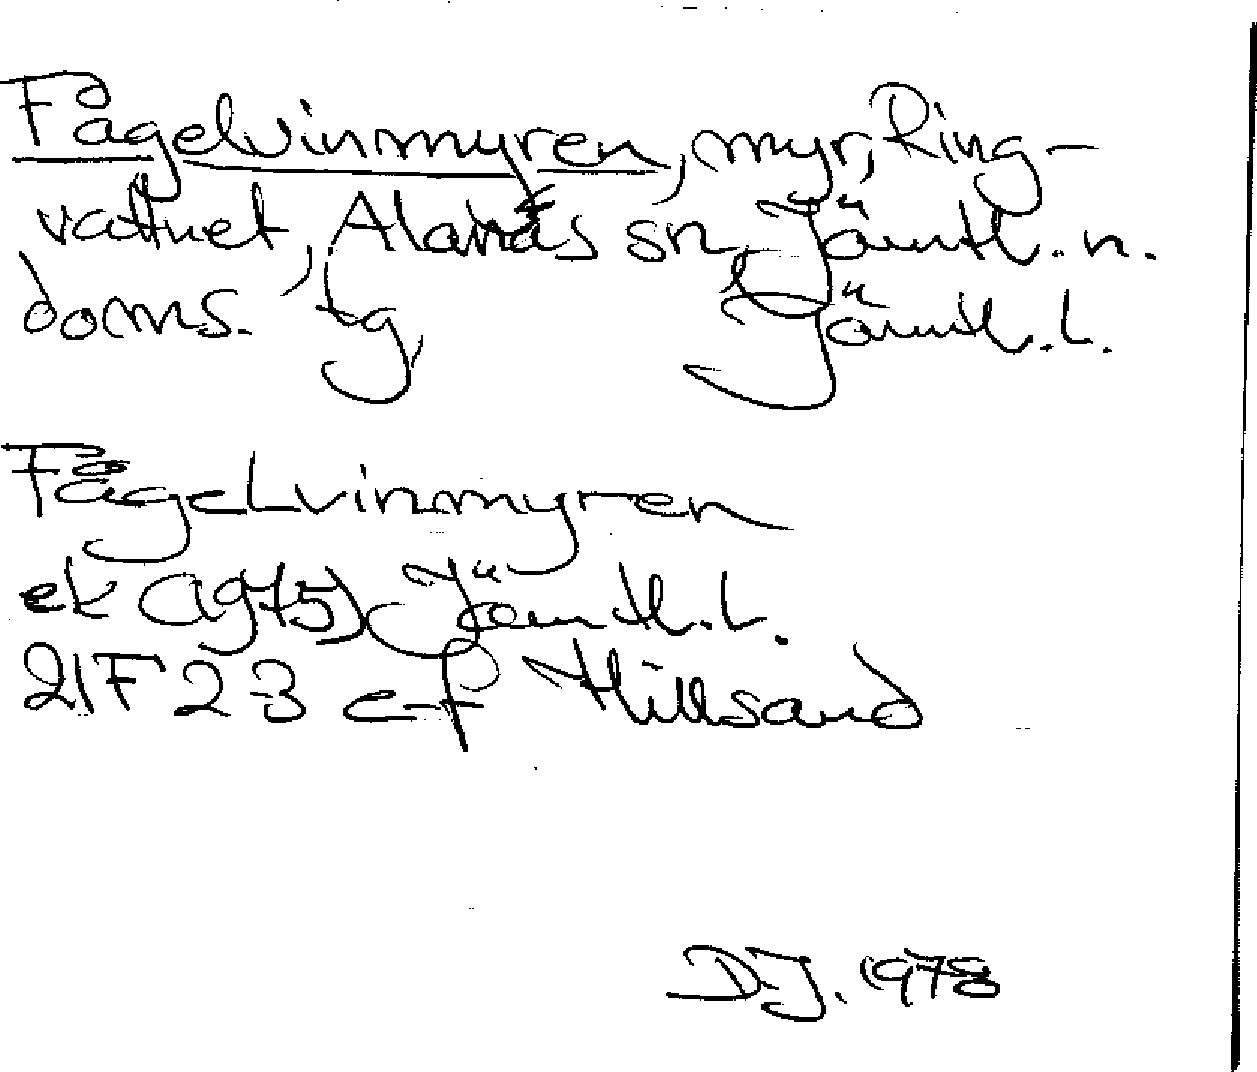 Fågelvinmyren, myr, Ring-
vattnet, Alanäs sn, Jämtl. n.
doms. tg, Jämtl. l.
Fågelvinmyren
ek (1975) Jämtl. l.
21F 2-3 e-f Hillsand
DJ. 1978